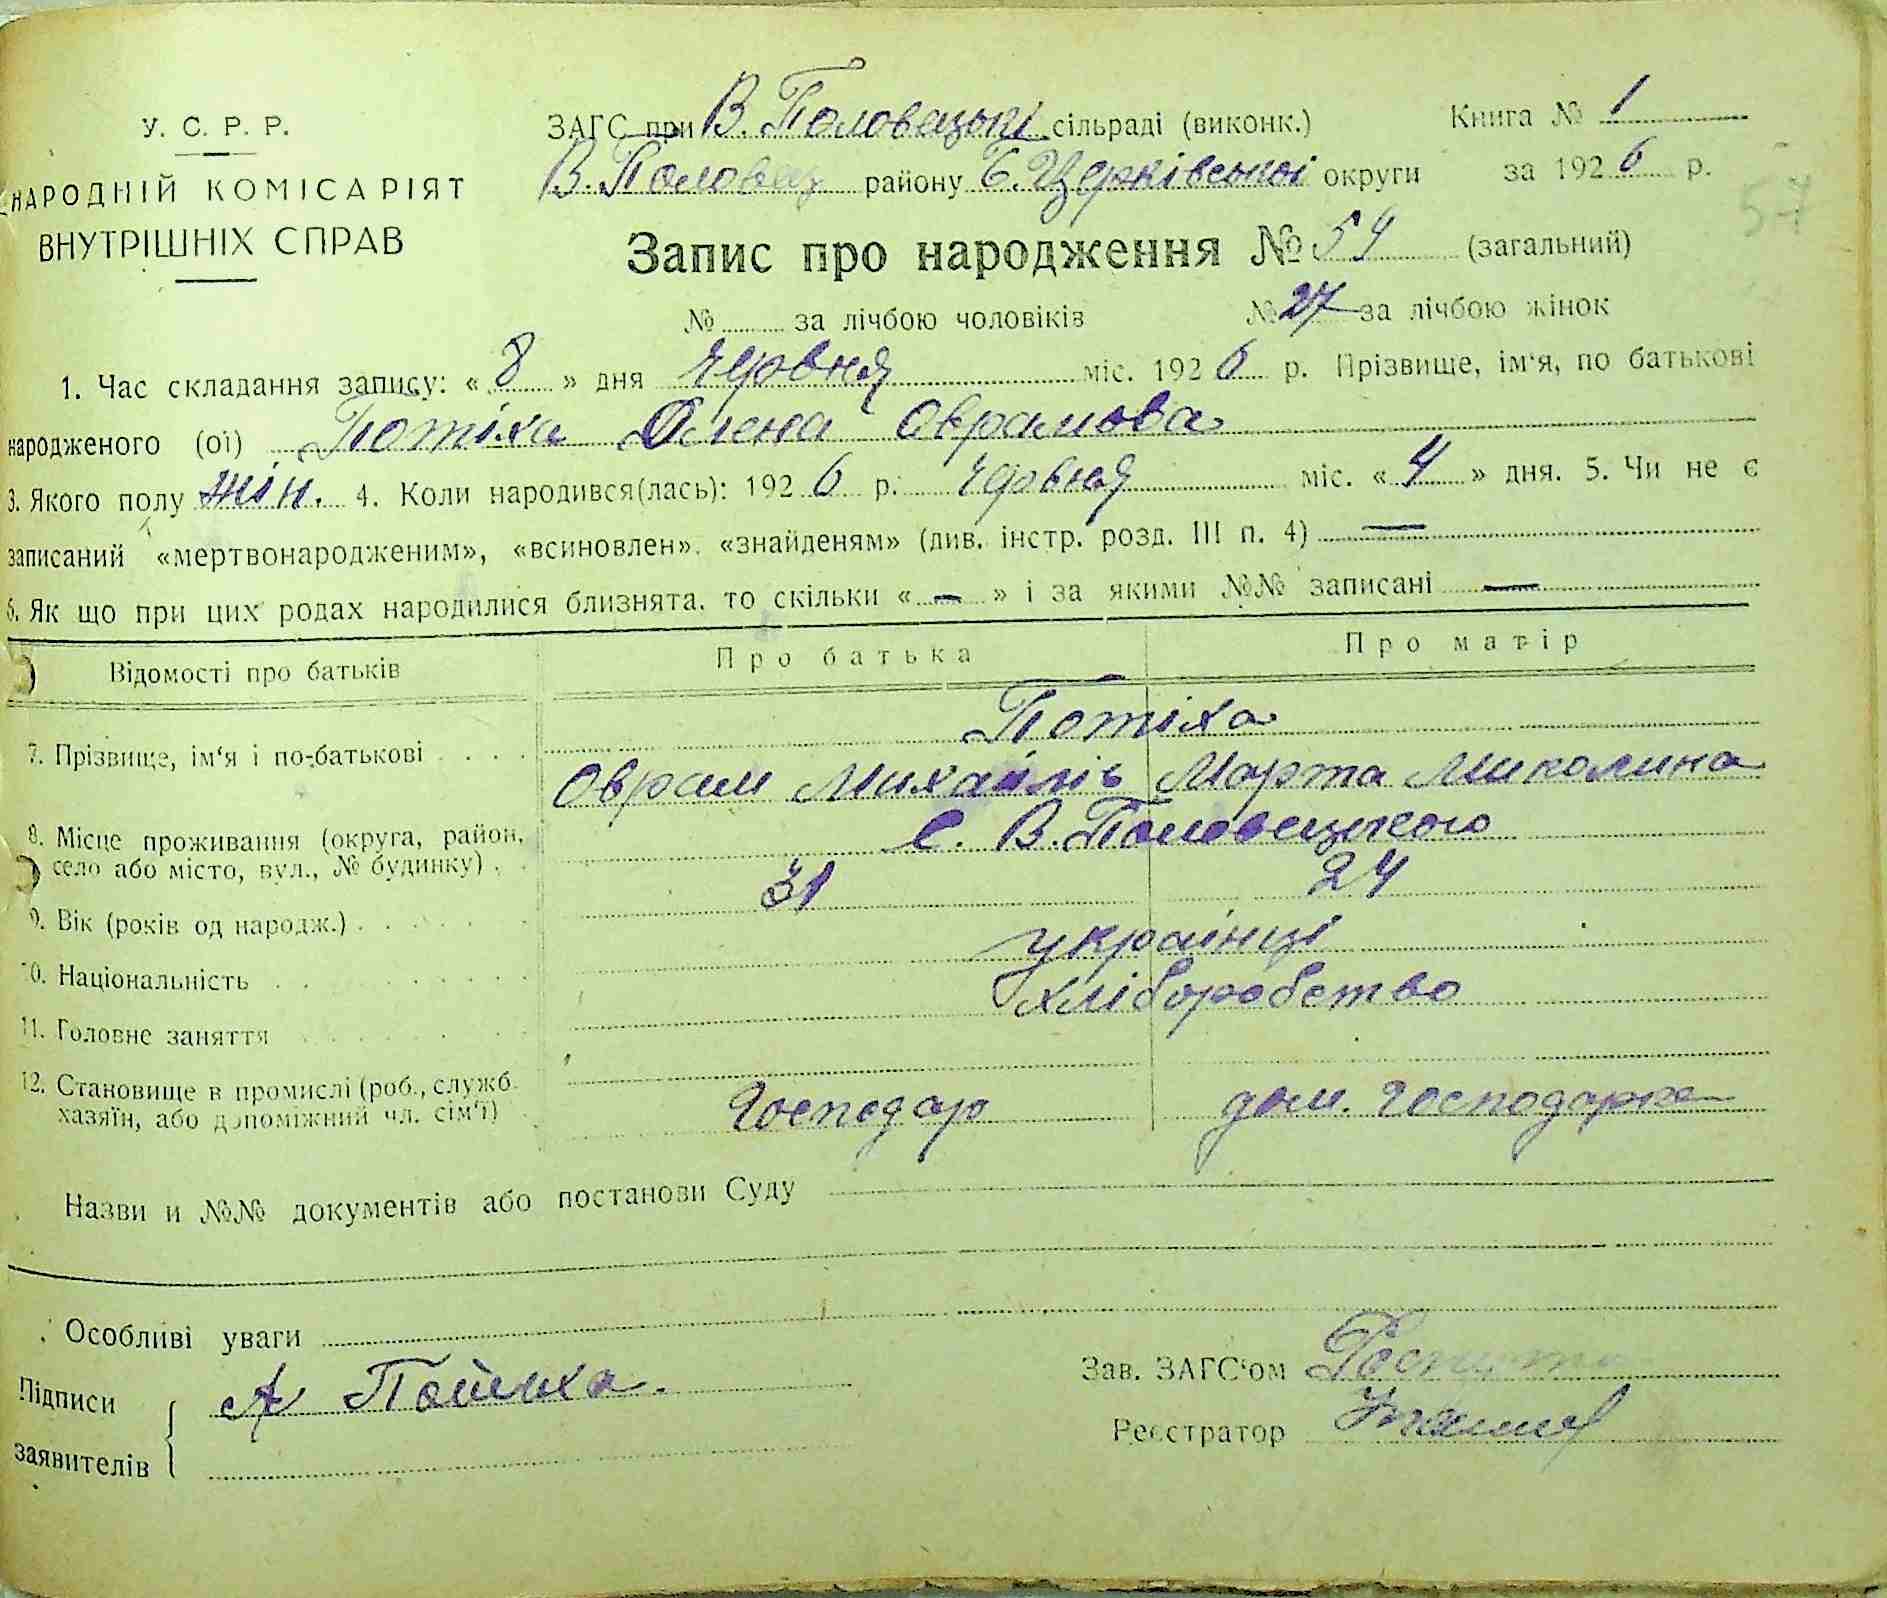 У. С. Р. Р.
НАРОДНІЙ КОМІСАРІЯТ
ВНУТРІШНІХ СПРАВ
ЗАГС при В. Половецькі сільраді (виконк.) Книга № 1
В. Половец району Б. Церківської округи за 1926 р.
57
Запис про народження № 54 (загальний)
№ за лічбою чоловіків № 27 за лічбою жінок
1. Час складання запису: « 8 » дня червня міс. 1926 р. Прізвище, ім'я, по батькові
народженого (ої) Потіха Олена Оврамова
3. Якого полу жін. 4. Коли народився(лась): 1926 р. червня міс. « 4 » дня. 5. Чи не є
записаний «мертвонародженим», «всиновлен», «знайденям» (див. інстр. розд. III п. 4) —
6. Як що при цих родах народилися близнята, то скільки « — » і за якими №№ записані —
Відомості про батьків Про батька Про матір
7. Прізвище, ім'я і по-батькові Потіха
Оврам Михайлів Марта Миколина
8. Місце проживання (округа, район, село або місто, вул., № будинку) с. В. Половецького
9. Вік (років од народж.) 31 24
10. Національність українці
11. Головне заняття хліборобство
12. Становище в промислі (роб., служб.
хазяїн, або допоміжний чл. сім'ї) Господар дом. господарка
Назви и №№ документів або постанови Суду
Особливі уваги
Підписи
заявителів А Потиха.
Зав. ЗАГС'ом
Реєстратор